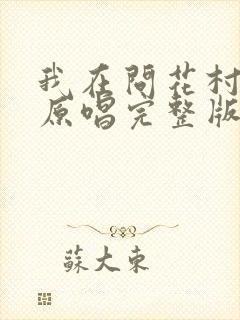 我在問花村
原唱完整版
蘇大東